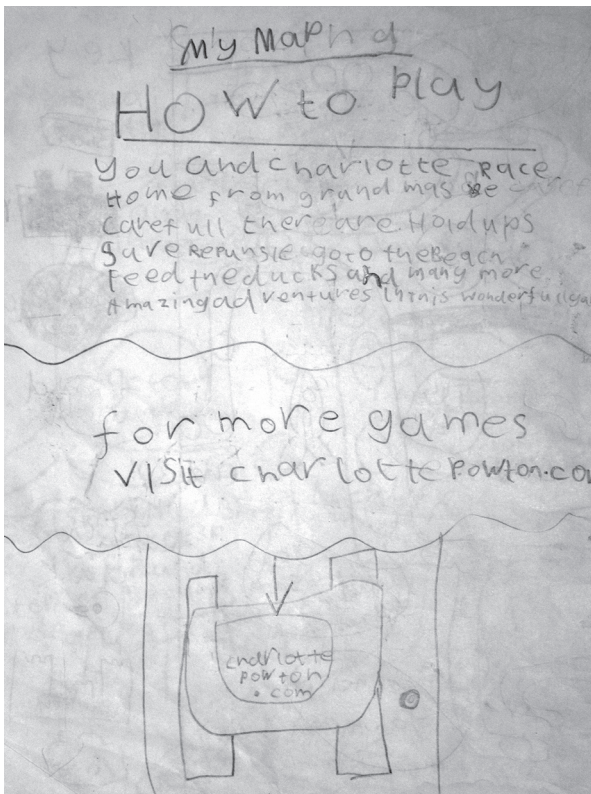 My Map
How to play
You and charlotte Race
Home from grand mas Be
carefull there are Hold ups
Save Repunsle go to the Beach
Feed the ducks and many more
Amazing ad ventures in this wonderfull
for more games
visit charlotte powton.co
charlotte
powton
.com